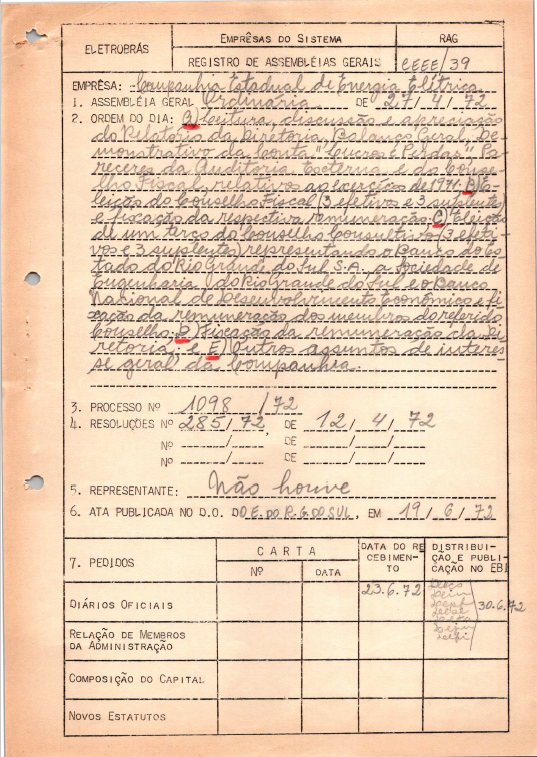 ELETROBRÁS
EMPRÊSAS DO SISTEMA
REGISTRO DE ASSEMBLÉIAS GERAIS
RAG
CEEE/39
EMPRÊSA: Companhia Estadual de Energia Elétrica
1. ASSEMBLÉIA GERAL Ordinária DE 27/4/72
2. ORDEM DO DIA: A) Leitura, discussão e apreciação
do Relatório da Diretoria, Balanço Geral, De-
monstrativo da Conta "Lucros e Perdas", Pa-
receres da Auditoria Externa e do Conse-
lho Fiscal, relativos ao exercício de 1971. B) E-
leição do Conselho Fiscal (3 efetivos e 3 suplentes)
e fixação da respectiva remuneração. C) Eleição
de um terço do Conselho Consultivo (3 efeti-
vos e 3 suplentes) representando o Banco do Es-
tado do Rio Grande do Sul S.A., a Sociedade de
Engenharia do Rio Grande do Sul e o Banco
Nacional de Desenvolvimento Econômico e fi-
xação da remuneração dos membros do referido
Conselho. D) Fixação da remuneração da Di-
retoria; e E) Outros assuntos de interes
se geral da Companhia.
3. PROCESSO Nº 1098 /72
4. RESOLUÇÕES Nº 285/72, DE 12/4/72
Nº / DE / /
Nº / DE / /
5. REPRESENTANTE: Não houve
6. ATA PUBLICADA NO D.O. DO E. DO R.G. DO SUL, EM 19/6/72
7. PEDIDOS
CARTA
Nº
DATA
DATA DO RE
CEBIMEN-
TO
DISTRIBUI-
ÇÃO E PUBLI-
CAÇÃO NO EBI
DIÁRIOS OFICIAIS
23.6.72
30.6.72
RELAÇÃO DE MEMBROS
DA ADMINISTRAÇÃO
COMPOSIÇÃO DO CAPITAL
NOVOS ESTATUTOS